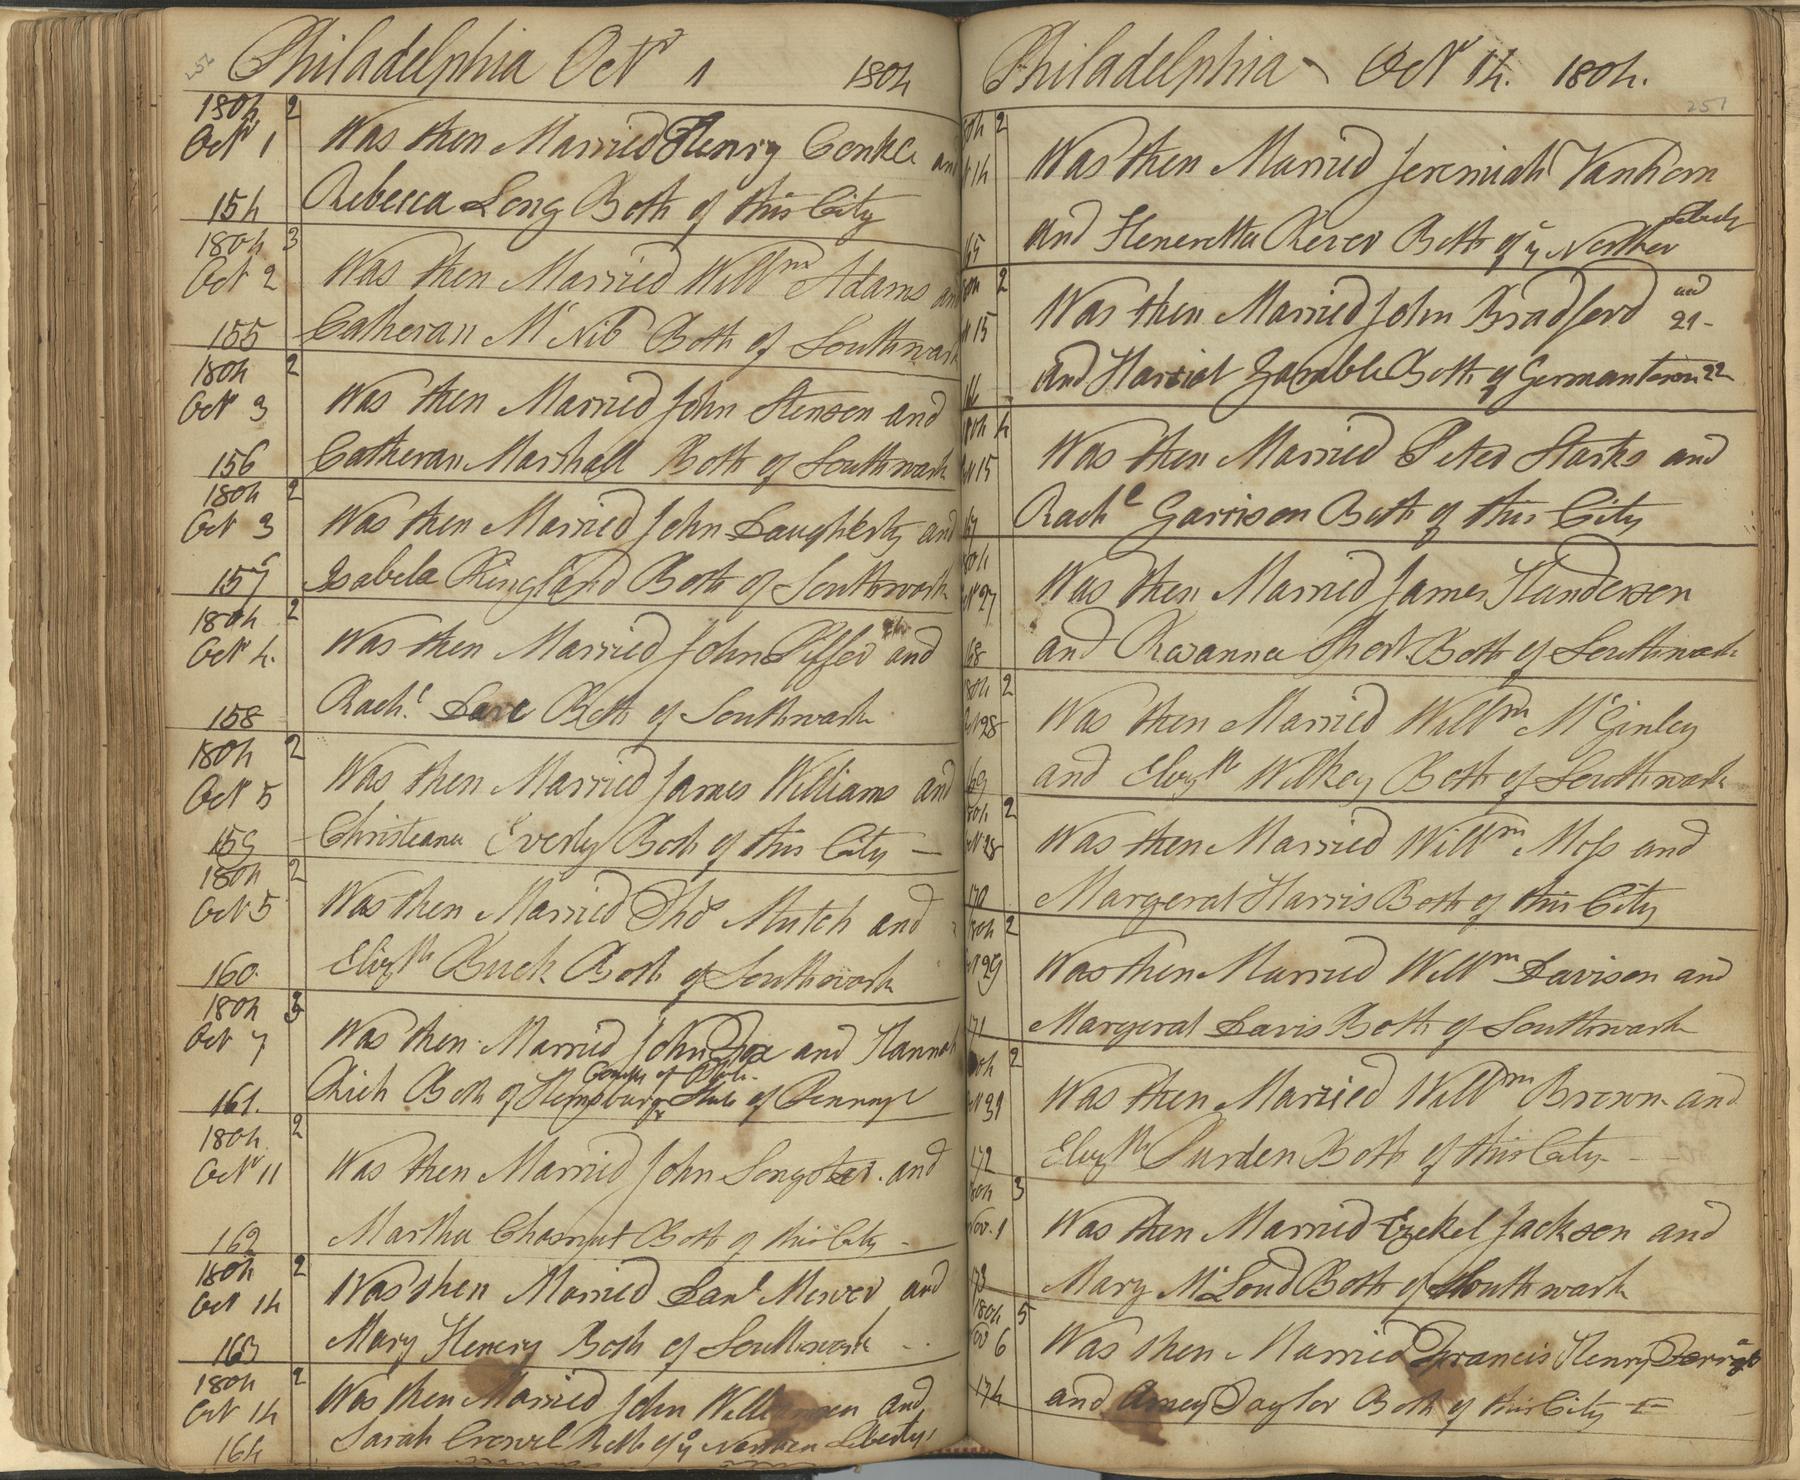 256
Philadelphia Octr 1 1804
1804 2
Octr 1 Was then Married Henry Conkle and
154 Rebecca Long Both of this City
1804 3
Oct 2 Was then Married Willm Adams and
155 Catheran McNib Both of Southwark
1804 2
Octr 3 Was then Married John Stenson and
156 Catheran Marshall Both of Southwark
1804 2
Oct 3 Was then Married John Daugherty and
157 Isabela Ringland Both of Southwark
1804 2
Oct 4. Was then Married John Piffer and
158 Rachl Dare Both of Southwark
1804 2
Oct 5 Was then Married James Williams and
159 Christeana Everly Both of this City —
1804 2
Oct 5 Was then Married Thos Mutch and
160. Elizth Buck Both of Southwark
1804 3
Oct 7 Was then Married John Fox and Hannah
161. Rich Both of County of State of Pennsya
1804 2
Octr 11 Was then Married John and
162 Martha Chosnut Both of this City -
1804 2
Oct 14 Was then Married Danl Mercer and
163 Mary Henery Both of Southwark
1804 2
Oct 14 Was then Married John Williamson and
164 Sarah Crowel Both of ye Northen Libertys
Philadelphia - Octr 14. 1804.
251
1804 2
14 Was then Married Jeremiah Vanhorn
65 and Heneretta Rever Both of ye Norther Libert
1804 2
15 Was then Married John Bradford and 21-
and Harriot Gamble Both of Germantown 22
1804 4
15 Was then Married Peter Starks and
67 Rachl Garrison Both of this City
1804
Oct 27 Was then Married James Handerson
68 and Roxanna Short Both of Southwark
1804 2
Oct 28 Was then Married Willm McGinley
69 and Elizth Wilkey Both of Southwark
1804 2
Oct 28 Was then Married Willm Moss and
170 Margeret Harris Both of this City
1804 2
Oct 29 Was then Married Willm Davison and
171 Margeret Davis Both of Southwark
1804 2
Oct 31 Was then Married Willm Brown and
172 Elizth Purden Both of this City -
1804 3
Nov. 1 Was then Married Ezekel Jackson and
173 Mary McLoud Both of Southwark
1804 5
Nov 6 Was then Married Francis Henry
174 and Amey Taylor Both of this City